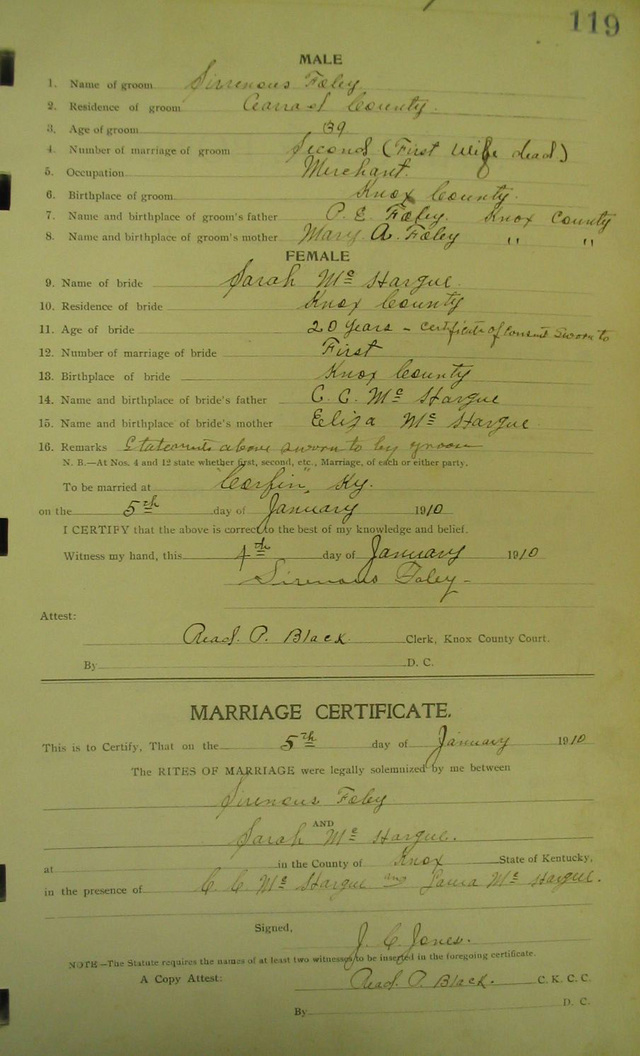 119
MALE
1. Name of groom Sirrenous Foley
2. Residence of groom Garrard County.
3. Age of groom 39
4. Number of marriage of groom Second (First Wife dead)
5. Occupation Merchant.
6. Birthplace of groom Knox County.
7. Name and birthplace of groom's father P. E. Foley. Knox County
8. Name and birthplace of groom's mother Mary A. Foley " "
FEMALE
9. Name of bride Sarah Mc Hargue.
10. Residence of bride Knox County
11. Age of bride 20 Years – Certificate of Consent Sworn to
12. Number of marriage of bride First
13. Birthplace of bride Knox County
14. Name and birthplace of bride's father C. C. Mc Hargue
15. Name and birthplace of bride's mother Eliza Mc Hargue
16. Remarks Statements above sworn to by groom
N. B.—At Nos. 4 and 12 state whether first, second, etc., Marriage, of each or either party.
To be married at Corbin, Ky.
on the 5th day of January 1910
I CERTIFY that the above is correct to the best of my knowledge and belief.
Witness my hand, this 4th day of January 1910
Sirenous Foley
Attest:
Read. P. Black Clerk, Knox County Court.
By D. C.
MARRIAGE CERTIFICATE.
This is to Certify, That on the 5th day of January 1910
The RITES OF MARRIAGE were legally solemnized by me between
Sirenous Foley
AND
Sarah Mc Hargue.
at in the County of Knox State of Kentucky,
in the presence of C. C. Mc Hargue and Laura Mc Hargue.
Signed,
J. C. Jones.
NOTE—The Statute requires the names of at least two witnesses to be inserted in the foregoing certificate.
A Copy Attest: Read. P. Black. C. K. C. C.
By D. C.